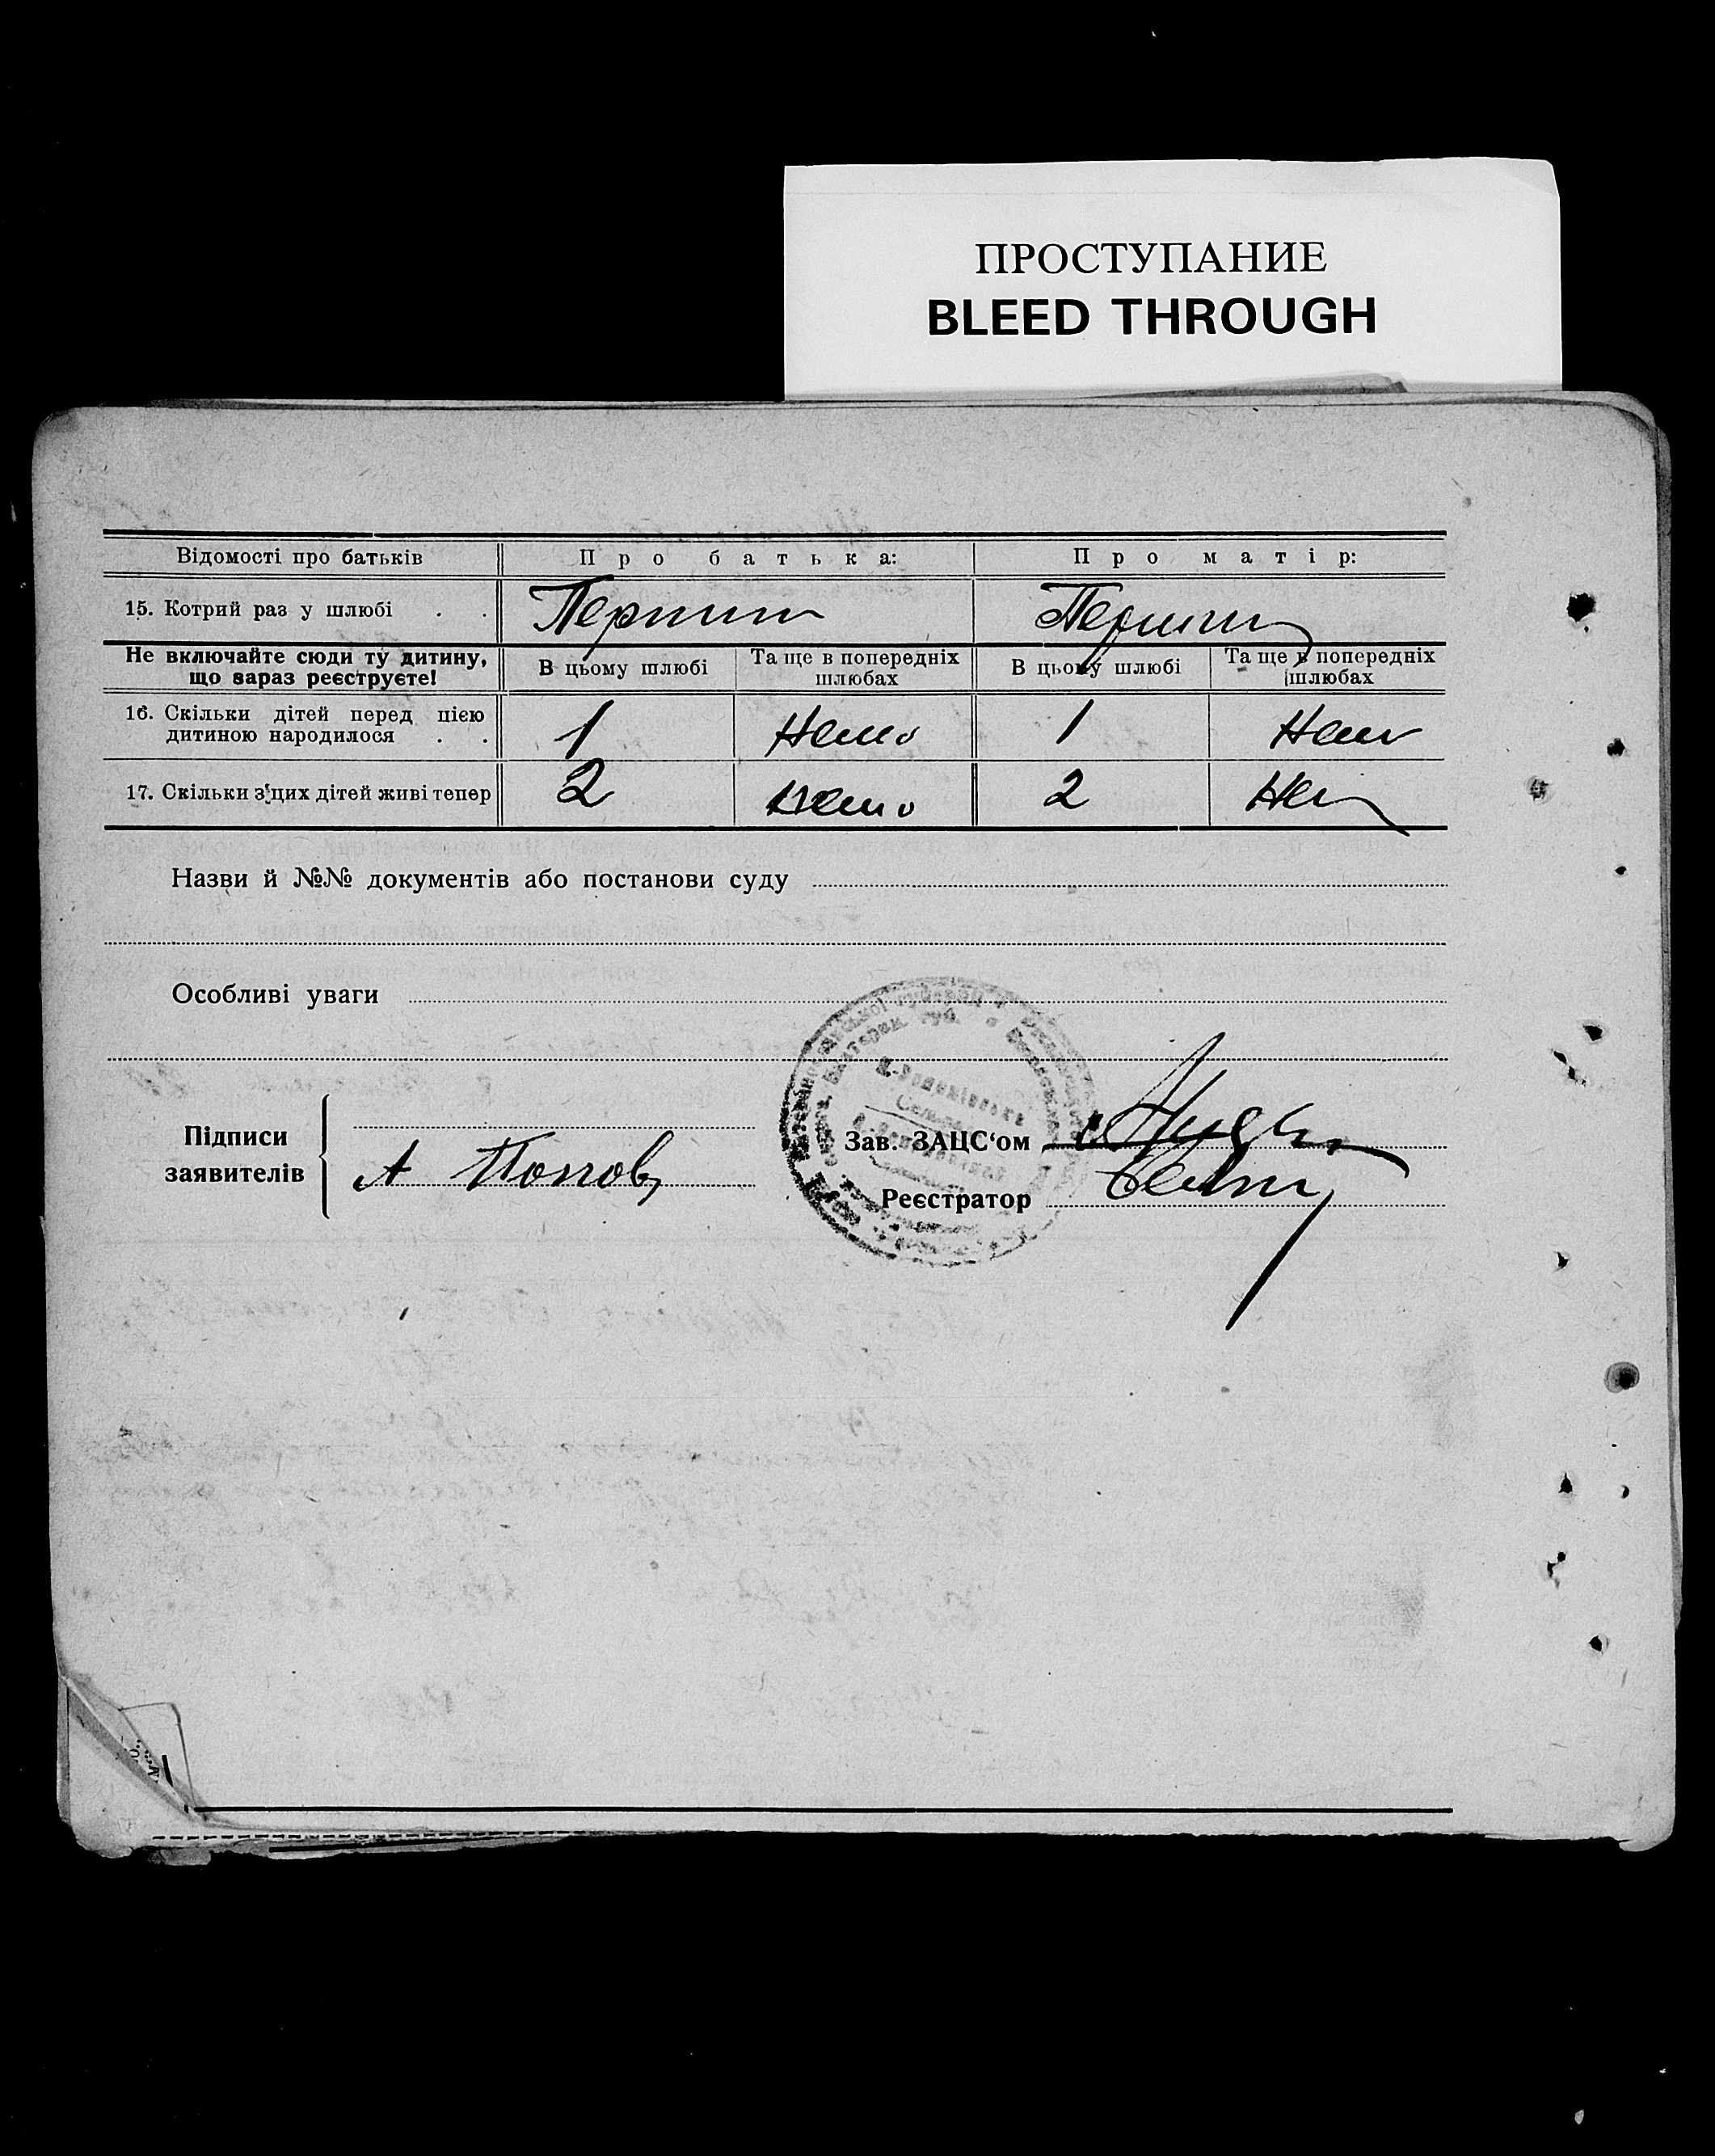 ПРОСТУПАНИЕ
BLEED THROUGH
Відомості про батьків П р о б а т ь к а: П р о м а т і р:
15. Котрий раз у шлюбі . . Перший Перший
Не включайте сюди ту дитину, що зараз реєструєте! В цьому шлюбі Та ще в попередніх шлюбах В цьому шлюбі Та ще в попередніх шлюбах
16. Скільки дітей перед цією дитиною народилося . . 1 Нема 1 Нема
17. Скільки з цих дітей живі тепер 2 Нема 2
Назви й №№ документів або постанови суду
Особливі уваги
Підписи заявителів А Попов
Зав. ЗАЦС‘ом
Реєстратор